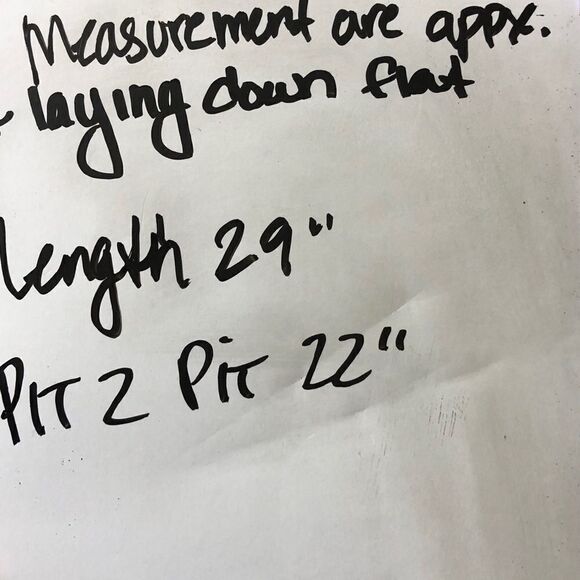 Measurement are appx.
- laying down flat
Length 29"
Pit 2 Pit 22"